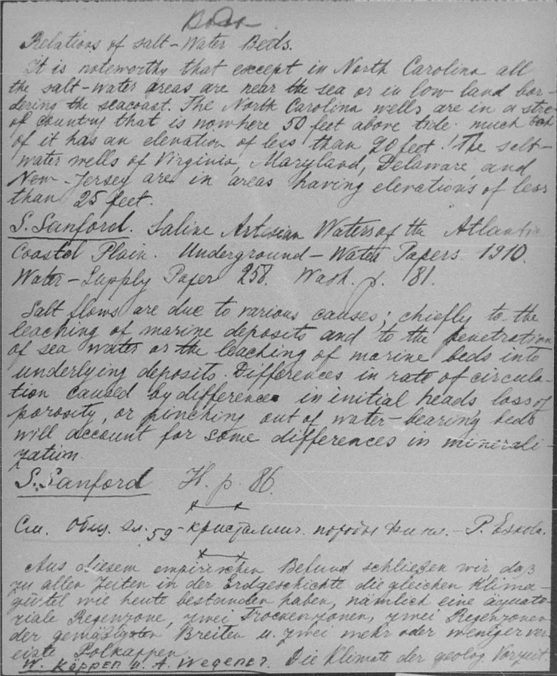 Вода
Relations of salt-Water Beds.
It is noteworthy that except in North Carolina all
the salt-water areas are near the sea or in low land bor-
dering the seacoast. The North Carolina wells are in a
of country that is nowhere 50 feet above tide; much
of it has an elevation of less than 20 feet. The salt-
water wells of Virginia, Maryland, Delaware and
New-Jersey are in areas having elevations of less
than 25 feet.
S. Sanford. Saline Artesian Waters of the Atlantic
Coastal Plain. Underground-Water Papers. 1910.
Water-Supply Paper 258. Wash. p. 81.
Salt flows are due to various causes; chiefly to the
leaching of marine deposits and to the penetration
of sea water or the leaching of marine beds into
underlying deposits. Differences in rate of circula
tion caused by difference in initial heads loss of
porosity, or pinching out of water-bearing beds
will account for some differences in minerali
zation.
S. Sanford H. p. 86.
См. Общ. зл. 59 - кристаллич. породы - P. Eskola.
Aus diesem empirischen Befund schließen wir, daß
zu allen Zeiten in der Erdgeschichte die gleichen Klima-
gürtel wie heute bestanden haben, nämlich eine äquato-
riale Regenzone, zwei Trockenzonen, zwei Regenzonen
der gemäßigten Breiten u. zwei mehr oder weniger ver-
eiste Polkappen
W. Köppen u. A. Wegener. Die Klimate der geolog. Vorzeit